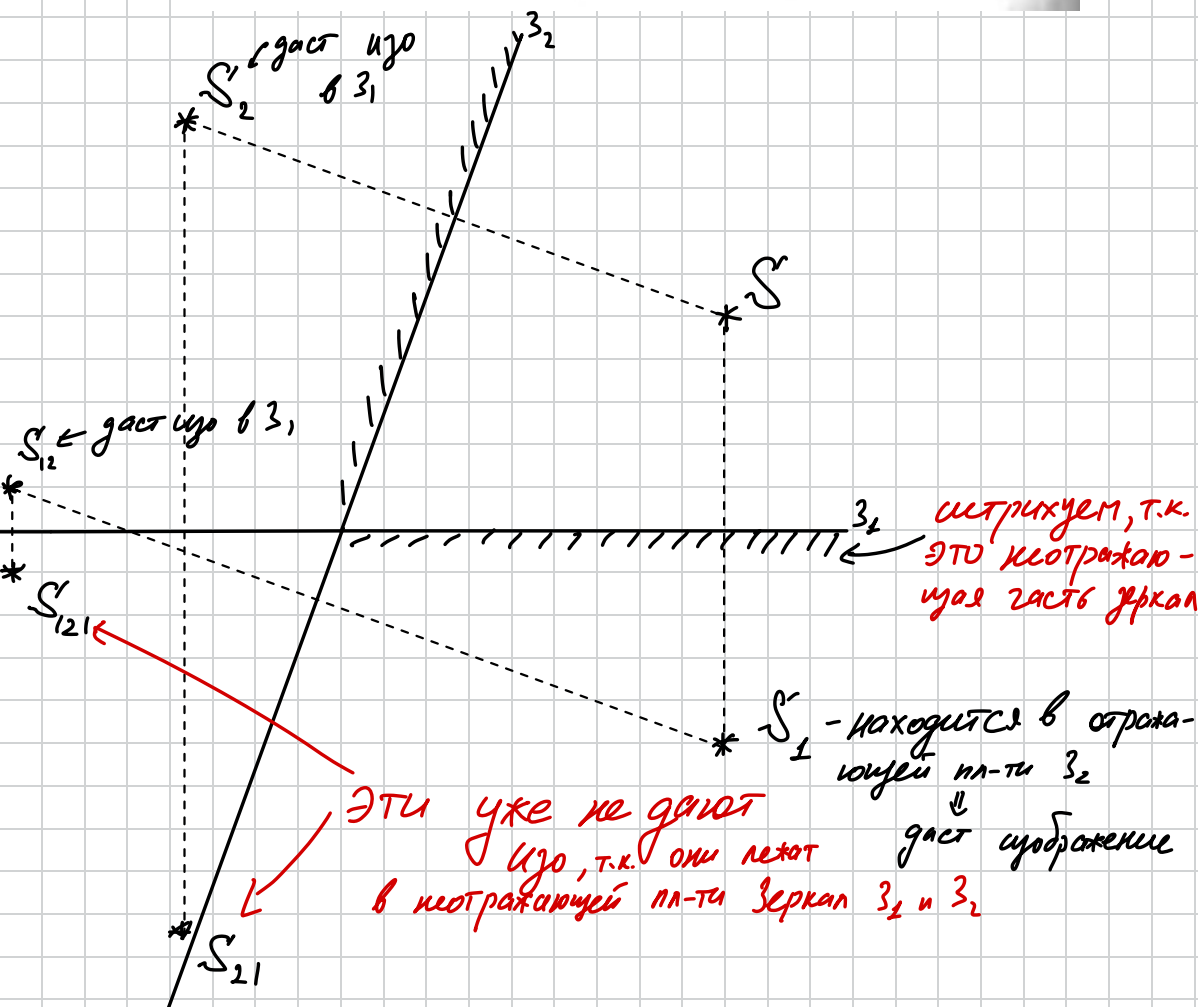 З₂
S₂ даст изо
в З₁
S
S₁₂ даст изо в З₁
З₁
штрихуем, т.к.
это неотражаю-
щая часть зеркал
S₁₂₁
S₁ - находится в отража-
ющей пл-ти З₂
⇓
даст изображение
Эти уже не дают
изо, т.к. они лежат
в неотражающей пл-ти зеркал З₁ и З₂
S₂₁